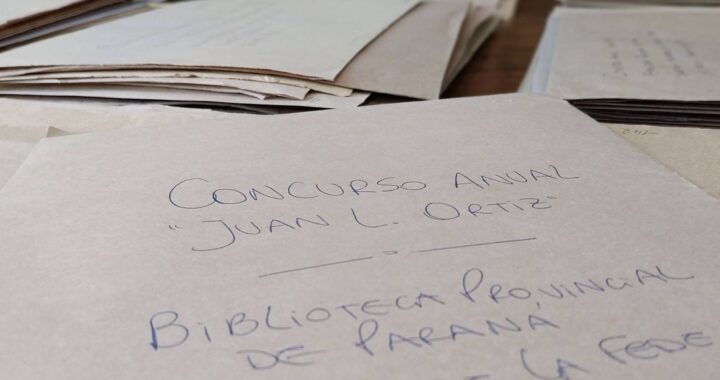 CONCURSO ANUAL
"JUAN L. ORTIZ"
BIBLIOTECA PROVINCIAL
DE PARANA
LA FEDE